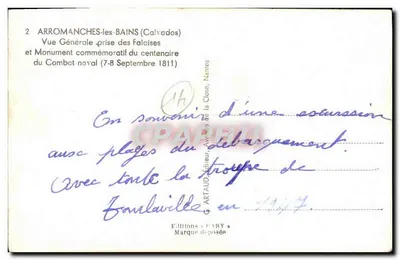 2 ARROMANCHES-les-BAINS (Calvados)
Vue Générale prise des Falaises
et Monument commémoratif du centenaire
du Combat naval (7-8 Septembre 1811)
14
En souvenir d'une excursion
aux plages du débarquement.
avec toute la troupe de
Tourlaville en 1947
G. ARTAUD, Editeur, Nantes
Editions "GABY"
Marque déposée